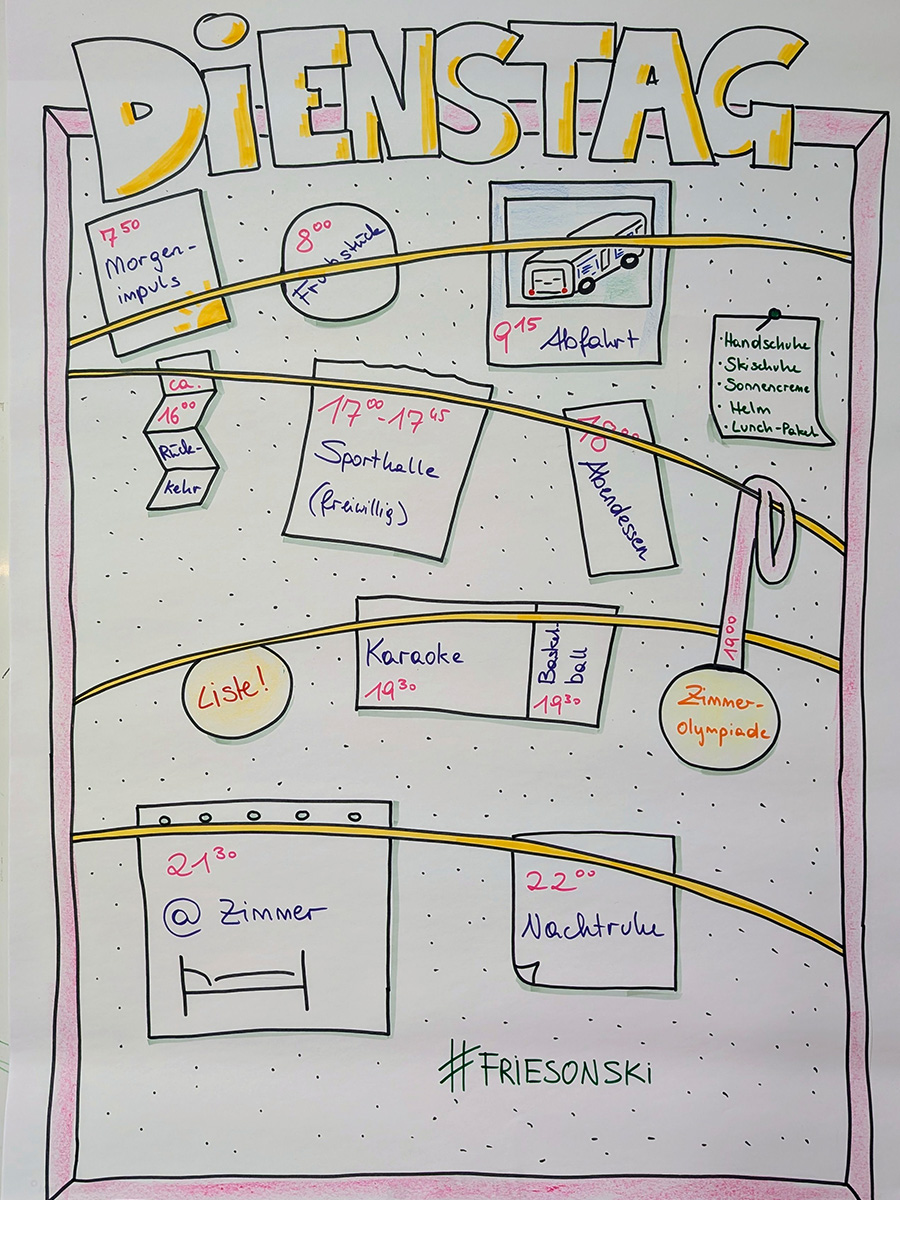 DiENSTAG
7⁵⁰
Morgen-
impuls
8⁰⁰
Frühstück
9¹⁵ Abfahrt
·Handschuhe
·Skischuhe
·Sonnencreme
· Helm
·Lunch-Paket
ca.
16⁰⁰
Rück-
kehr
17⁰⁰-17⁴⁵
Sporthalle
(freiwillig)
18⁰⁰
Abendessen
19⁰⁰
Zimmer-
olympiade
Liste!
Karaoke
19³⁰
Basket-
ball
19³⁰
21³⁰
@ Zimmer
22⁰⁰
Nachtruhe
#FRIESONSKi